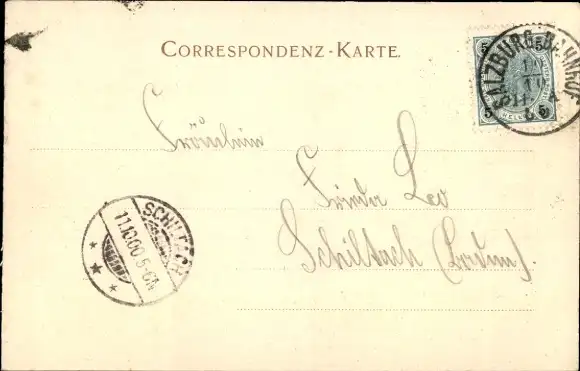 CORRESPONDENZ-KARTE.
SALZBURG-BAHNHOF
5 5
5 5
HELLER
Fräulein
Frieda Leo
Schiltach (Baden).
SCHILTACH
11.10.00.5-6N